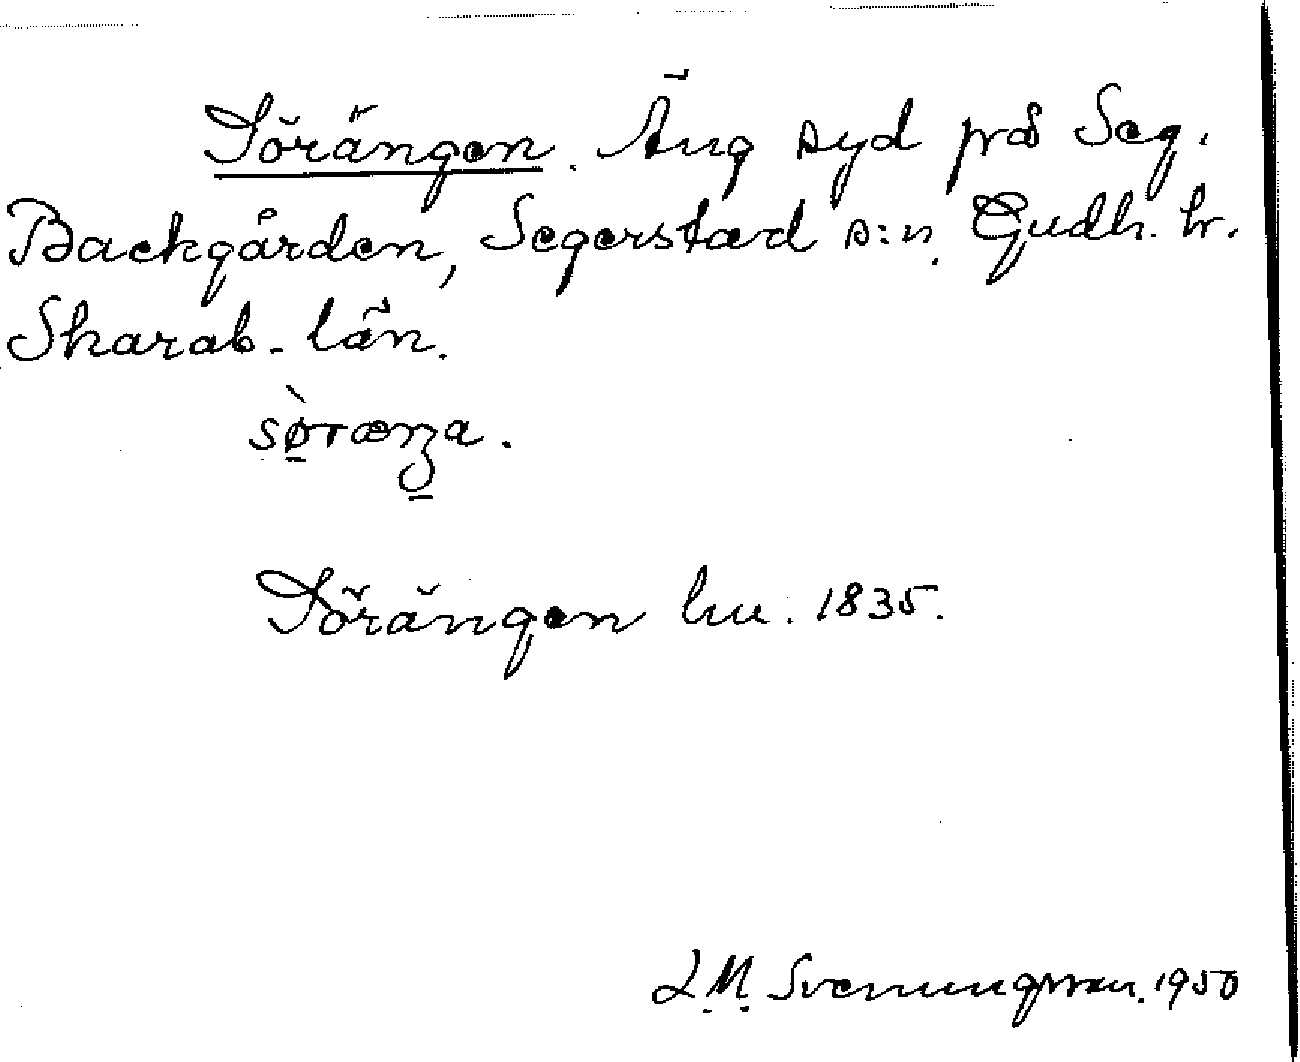 Sörängen. Äng syd på Seg.
Backgården, Segerstad s:n. Gudh. hr.
Skarab. län.
sø̀ræŋa.
Sörängen hu. 1835.
L.M. Svenungsson. 1950